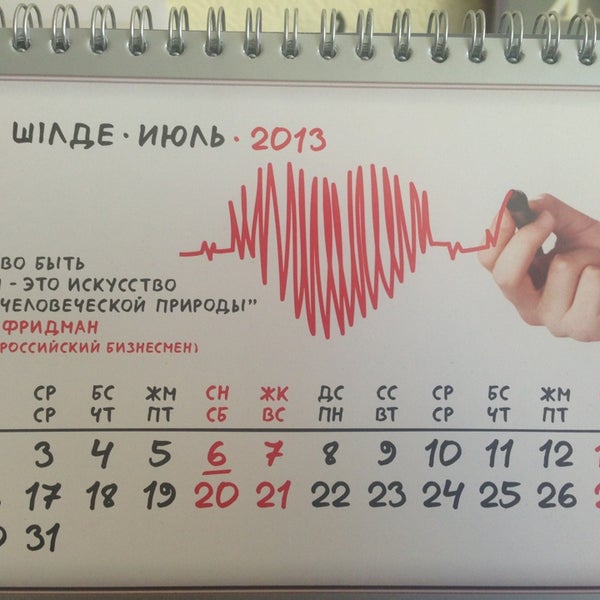 ШІЛДЕ · ИЮЛЬ · 2013
ВО БЫТЬ
- ЭТО ИСКУССТВО
ЧЕЛОВЕЧЕСКОЙ ПРИРОДЫ"
ФРИДМАН
РОССИЙСКИЙ БИЗНЕСМЕН)
СР БС ЖМ СН ЖК ДС СС СР БС ЖМ
СР ЧТ ПТ СБ ВС ПН ВТ СР ЧТ ПТ
3 4 5 6 7 8 9 10 11 12
17 18 19 20 21 22 23 24 25 26
31